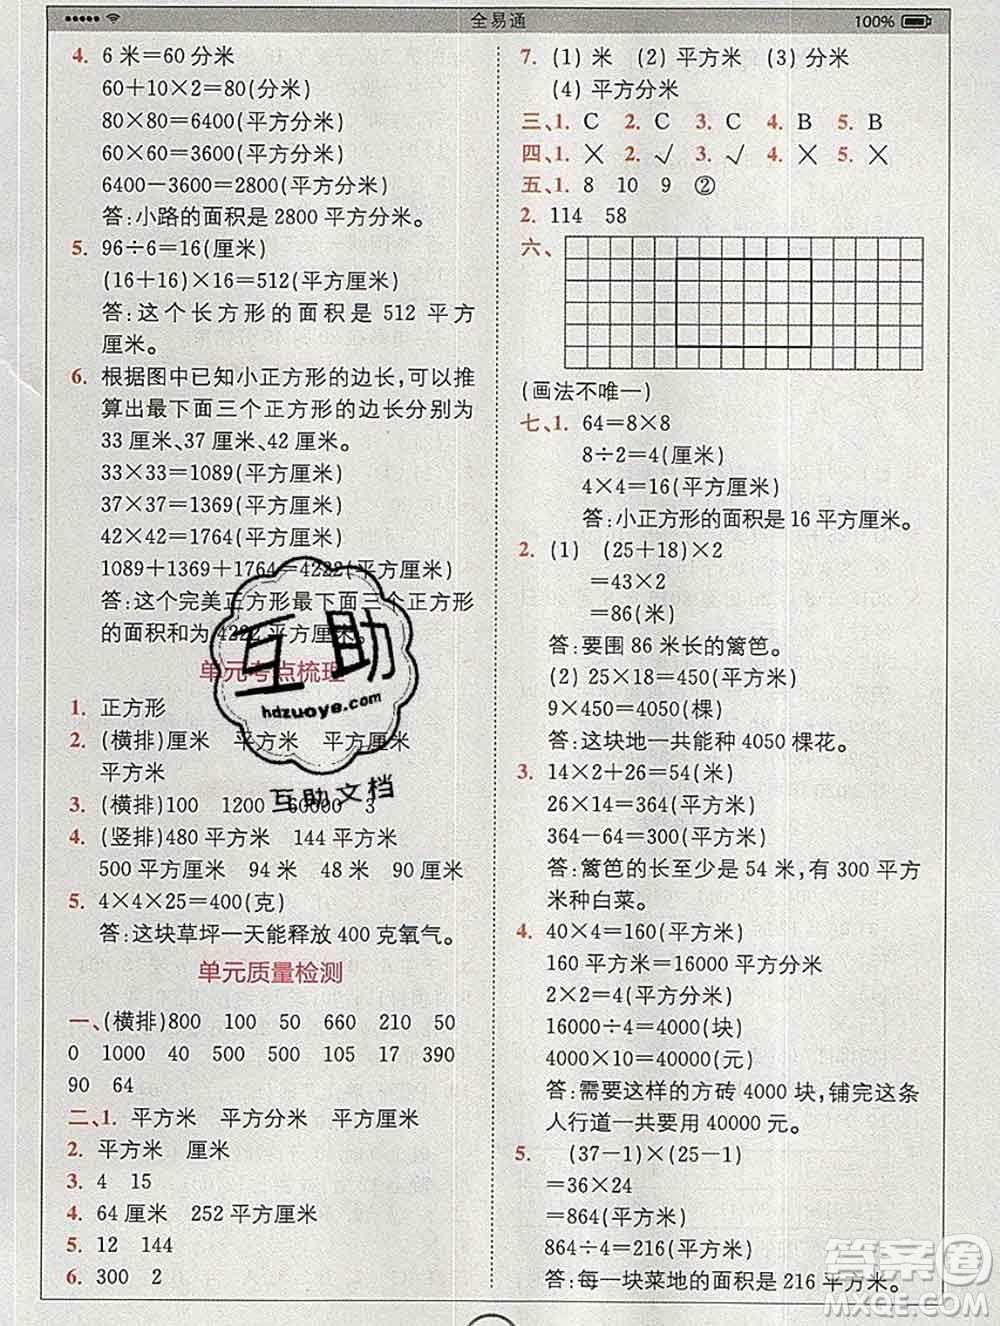 全易通
100%
4. 6米=60分米
60+10×2=80(分米)
80×80=6400(平方分米)
60×60=3600(平方分米)
6400-3600=2800(平方分米)
答:小路的面积是2800平方分米。
5. 96÷6=16(厘米)
(16+16)×16=512(平方厘米)
答:这个长方形的面积是512平方
厘米。
6. 根据图中已知小正方形的边长,可以推
算出最下面三个正方形的边长分别为
33厘米、37厘米、42厘米。
33×33=1089(平方厘米)
37×37=1369(平方厘米)
42×42=1764(平方厘米)
1089+1369+1764=4222(平方厘米)
答:这个完美正方形最下面三个正方形
的面积和为4222平方厘米。
单元考点梳理
1. 正方形
2. (横排)厘米 平方米 平方厘米
平方米
3. (横排)100 1200 60000 3
4. (竖排)480平方米 144平方米
500平方厘米 94米 48米 90厘米
5. 4×4×25=400(克)
答:这块草坪一天能释放400克氧气。
单元质量检测
一、(横排)800 100 50 660 210 50
0 1000 40 500 500 105 17 390
90 64
二、1. 平方米 平方分米 平方厘米
2. 平方米 厘米
3. 4 15
4. 64厘米 252平方厘米
5. 12 144
6. 300 2
7. (1)米 (2)平方米 (3)分米
(4)平方分米
三、1. C 2. C 3. C 4. B 5. B
四、1. × 2. √ 3. √ 4. × 5. ×
五、1. 8 10 9 ②
2. 114 58
六、
(画法不唯一)
七、1. 64=8×8
8÷2=4(厘米)
4×4=16(平方厘米)
答:小正方形的面积是16平方厘米。
2. (1) (25+18)×2
=43×2
=86(米)
答:要围86米长的篱笆。
(2) 25×18=450(平方米)
9×450=4050(棵)
答:这块地一共能种4050棵花。
3. 14×2+26=54(米)
26×14=364(平方米)
364-64=300(平方米)
答:篱笆的长至少是54米,有300平方
米种白菜。
4. 40×4=160(平方米)
160平方米=16000平方分米
2×2=4(平方分米)
16000÷4=4000(块)
4000×10=40000(元)
答:需要这样的方砖4000块,铺完这条
人行道一共要用40000元。
5. (37-1)×(25-1)
=36×24
=864(平方米)
864÷4=216(平方米)
答:每一块菜地的面积是216平方米。
互助
hdzuoye.com
互助文档
答案圈
MXQE.COM